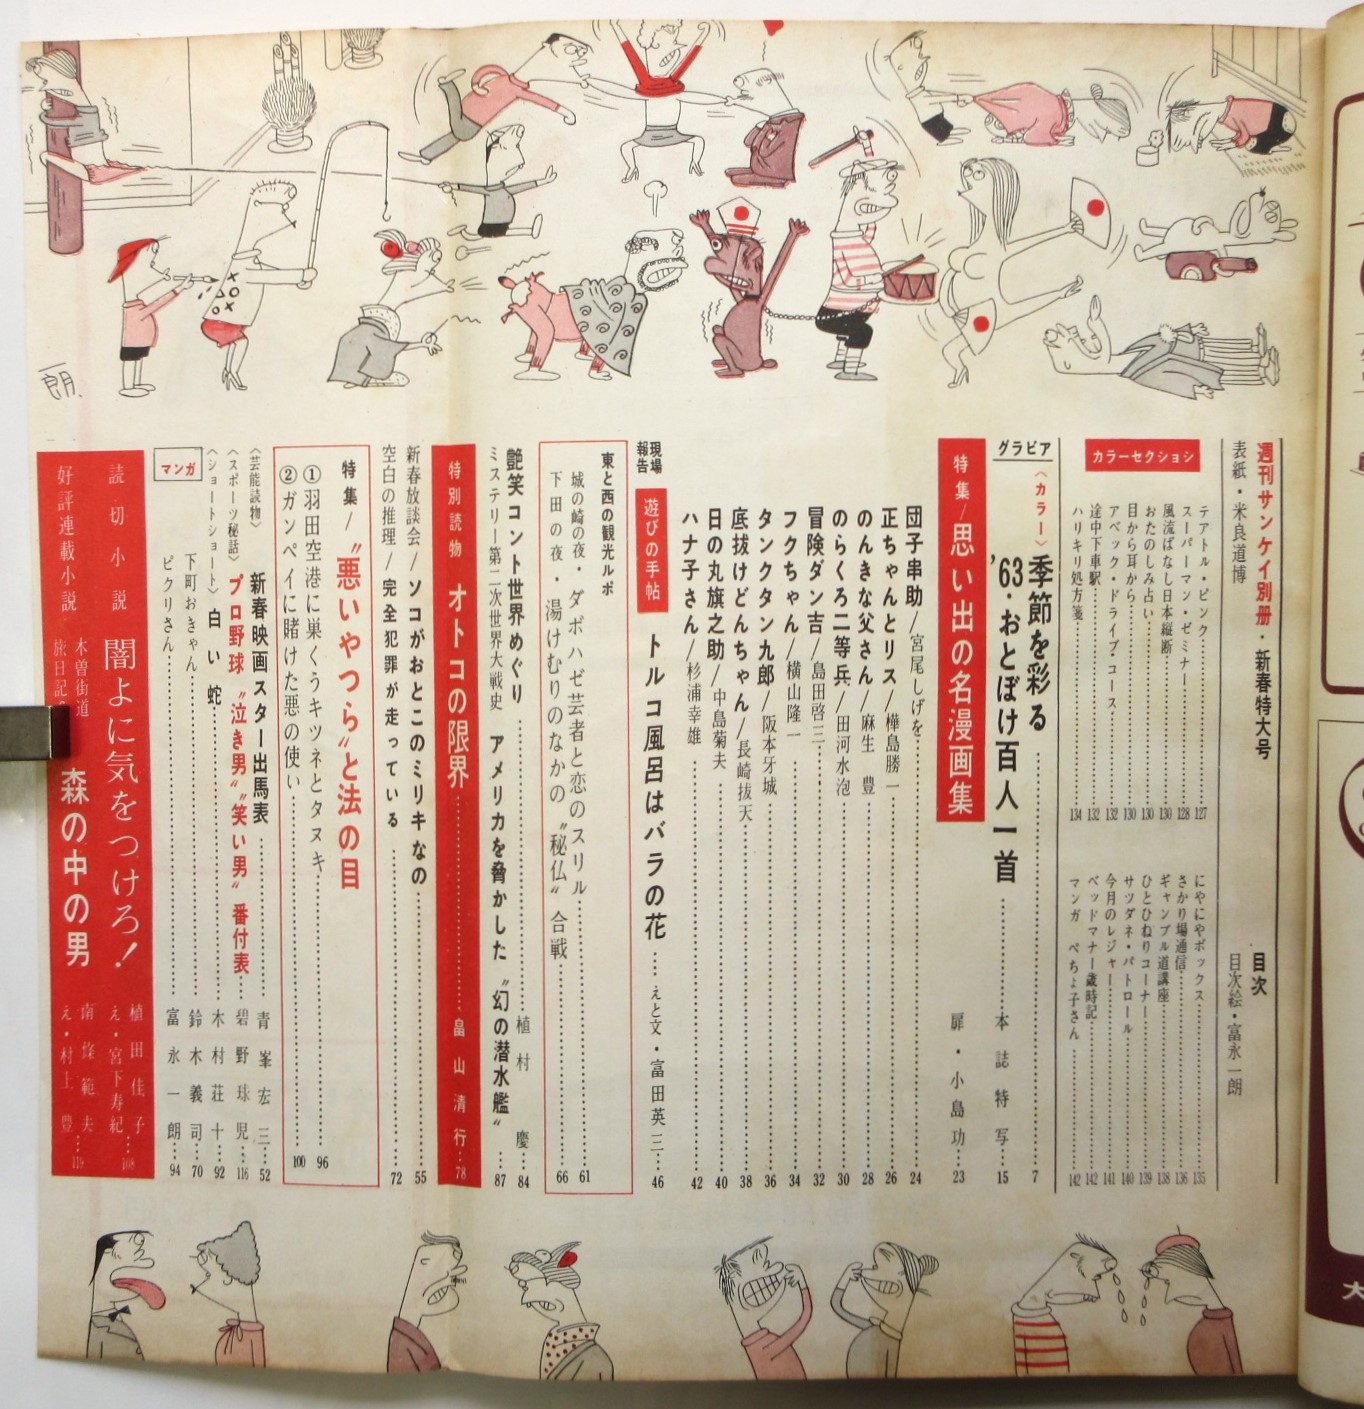 週刊サンケイ別册・新春特大号
目次
表紙・米良道博
目次絵・富永一朗
カラーセクション
テアトル・ピンク……127
スーパーマン・ゼミナー……128
風流ばなし日本縦断……130
おたのしみ占い……130
目から耳から……130
アベック・ドライブ・コース……132
途中下車駅……132
ハリキリ処方箋……134
にやにやボックス……135
さかり場通信……136
ギャンブル道講座……138
ひとひねりコーナー……139
サツダネ・パトロール……140
今月のレジャー……141
ベッドマナー歳時記……142
マンガ ぺちょ子さん……142
グラビア
〈カラー〉季節を彩る……7
'63・おとぼけ百人一首……本誌特写……15
特集/思い出の名漫画集
扉・小島功…23
団子串助/宮尾しげを……24
正ちゃんとリス/樺島勝一……26
のんきな父さん/麻生 豊……28
のらくろ二等兵/田河水泡……30
冒険ダン吉/島田啓三……32
フクちゃん/横山隆一……34
タンクタン九郎/阪本牙城……36
底抜けどんちゃん/長崎抜天……38
日の丸旗之助/中島菊夫……40
ハナ子さん/杉浦幸雄……42
現場報告
遊びの手帖
トルコ風呂はバラの花……えと文・富田英三…46
東と西の観光ルポ
城の崎の夜・ダボハゼ芸者と恋のスリル……61
下田の夜・湯けむりのなかの〝秘仏〟合戦……66
艶笑コント世界めぐり……植村 慶…84
ミステリー第二次世界大戦史 アメリカを脅かした〝幻の潜水艦〟……87
特別読物 オトコの限界……畠山清行…78
新春放談会/ソコがおとこのミリキなの……55
空白の推理/完全犯罪が走っている……72
特集/〝悪いやつら〟と法の目
①羽田空港に巣くうキツネとタヌキ……96
②ガンペイに賭けた悪の使い……100
〈芸能読物〉新春映画スター出馬表……青峯宏三…52
〈スポーツ秘話〉プロ野球〝泣き男〟〝笑い男〟番付表……碧野球児…116
〈ショートショート〉白い蛇……木村荘十…92
マンガ
下町おきゃん……鈴木義司…70
ピクリさん……富永一朗…94
読切小説 闇よに気をつけろ! 植田佳子…108
え・宮下寿紀
好評連載小説 木曽街道
旅日記
森の中の男 南條範夫…119
え・村上 豊
一朗